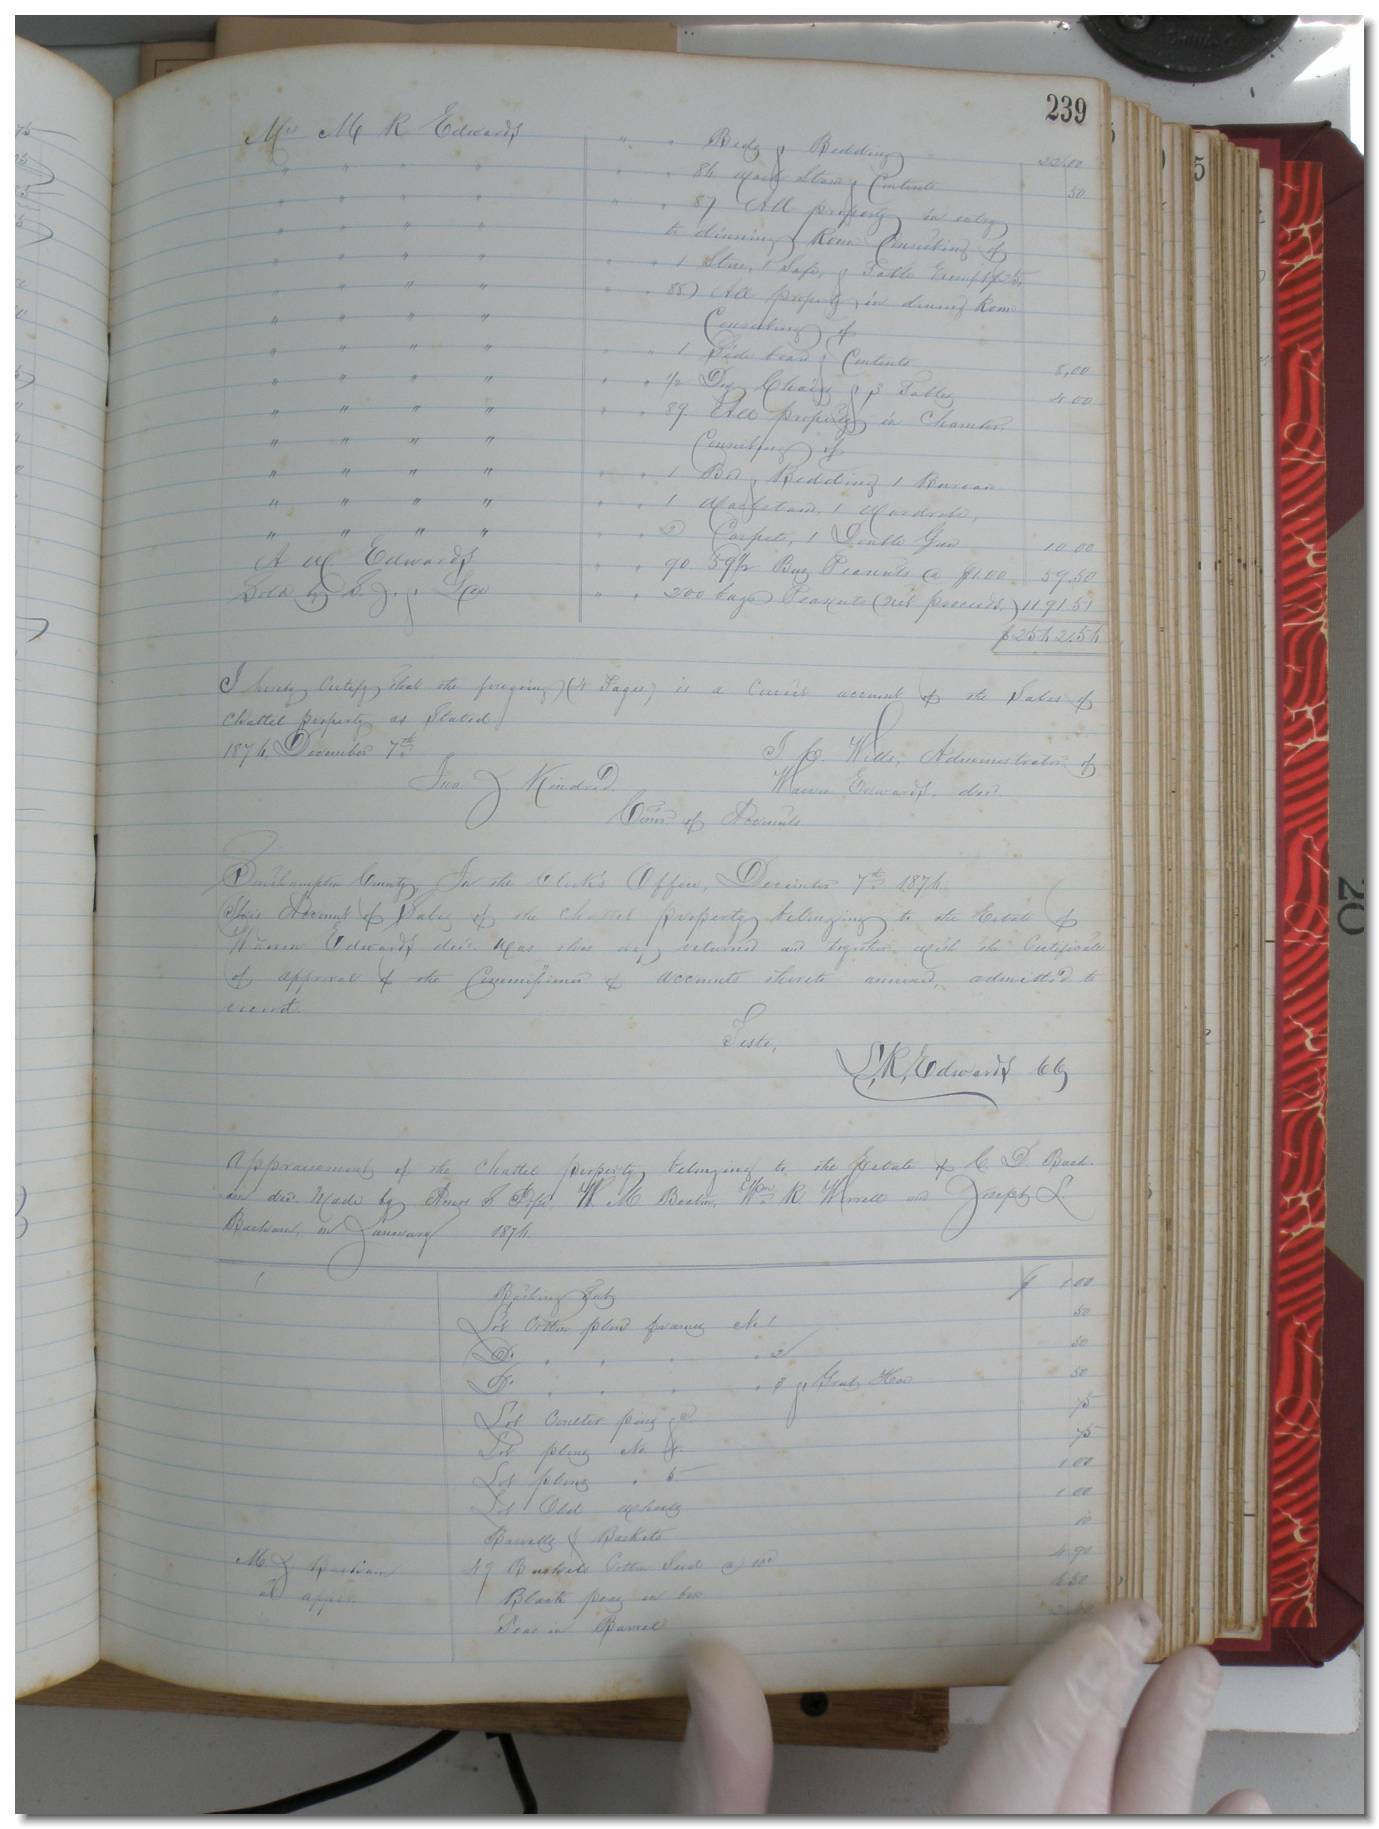 239
Mrs M R Edwards " " Beds & Bedding 20.00
" " " " " " 86 Wash Stand & Contents 50
" " " " " " 87 All property in entry
" " " " to dinning Room Consisting of
" " " " " " 1 Stove, 1 Safe, & Table
" " " " " " 88 All property in dinning Room
" " " " Consisting of
" " " " " " 1 Side board & Contents 8.00
" " " " " " 1/2 Doz Chairs & 3 Tables 4.00
" " " " " " 89 All property in Chamber,
" " " " Consisting of
" " " " " " 1 Bed & Bedding 1 Bureau
" " " " " " 1 Washstand, 1 Wardrobe,
" " " " " " 2 Carpets, 1 Double Gun 10.00
A W Edwards " " 90 59 1/2 Bus Peanuts @ $1.00 59.50
Sold by " " 200 bags Peanuts (net proceeds.) 1191.51
I hereby Certify that the foregoing (4 Pages) is a Correct account of the Sales of
Chattel property as Stated
1874, December 7th J C Wills, Administrator of
Jno. J. Kindred Warren Edwards. decd.
Comr of Accounts
Southampton County, In the Clerk's Office, December 7th 1874.
This Account of Sales of the chattel property belonging to the Estate of
Warren Edwards decd. was this day returned and together with the Certificate
of approval of the Commissioner of accounts thereto annexed, admitted to
record.
Teste,
L. R. Edwards CC
Appraisement of the chattel property belonging to the Estate of C. D. Barh-
am decd. Made by Amos S Pope, W. M Beaton, Wm R Worrell and Joseph L.
Barham, in January 1874
Bathing Tub $ 1.00
Lot Cotton plow frames No 1 50
Do. " " " " 2 50
Do. " " " " 3 & Grub Hoe 50
Lot Coulter &c. 75
Lot plows No. 4 75
Lot plows " 5 1.00
Lot Old wheels 1.00
Barrells & Baskets 10
M. J Barham 49 Bushels Cotton Seed @ 10¢ 4.90
Black peas in box
Peas in Barrel